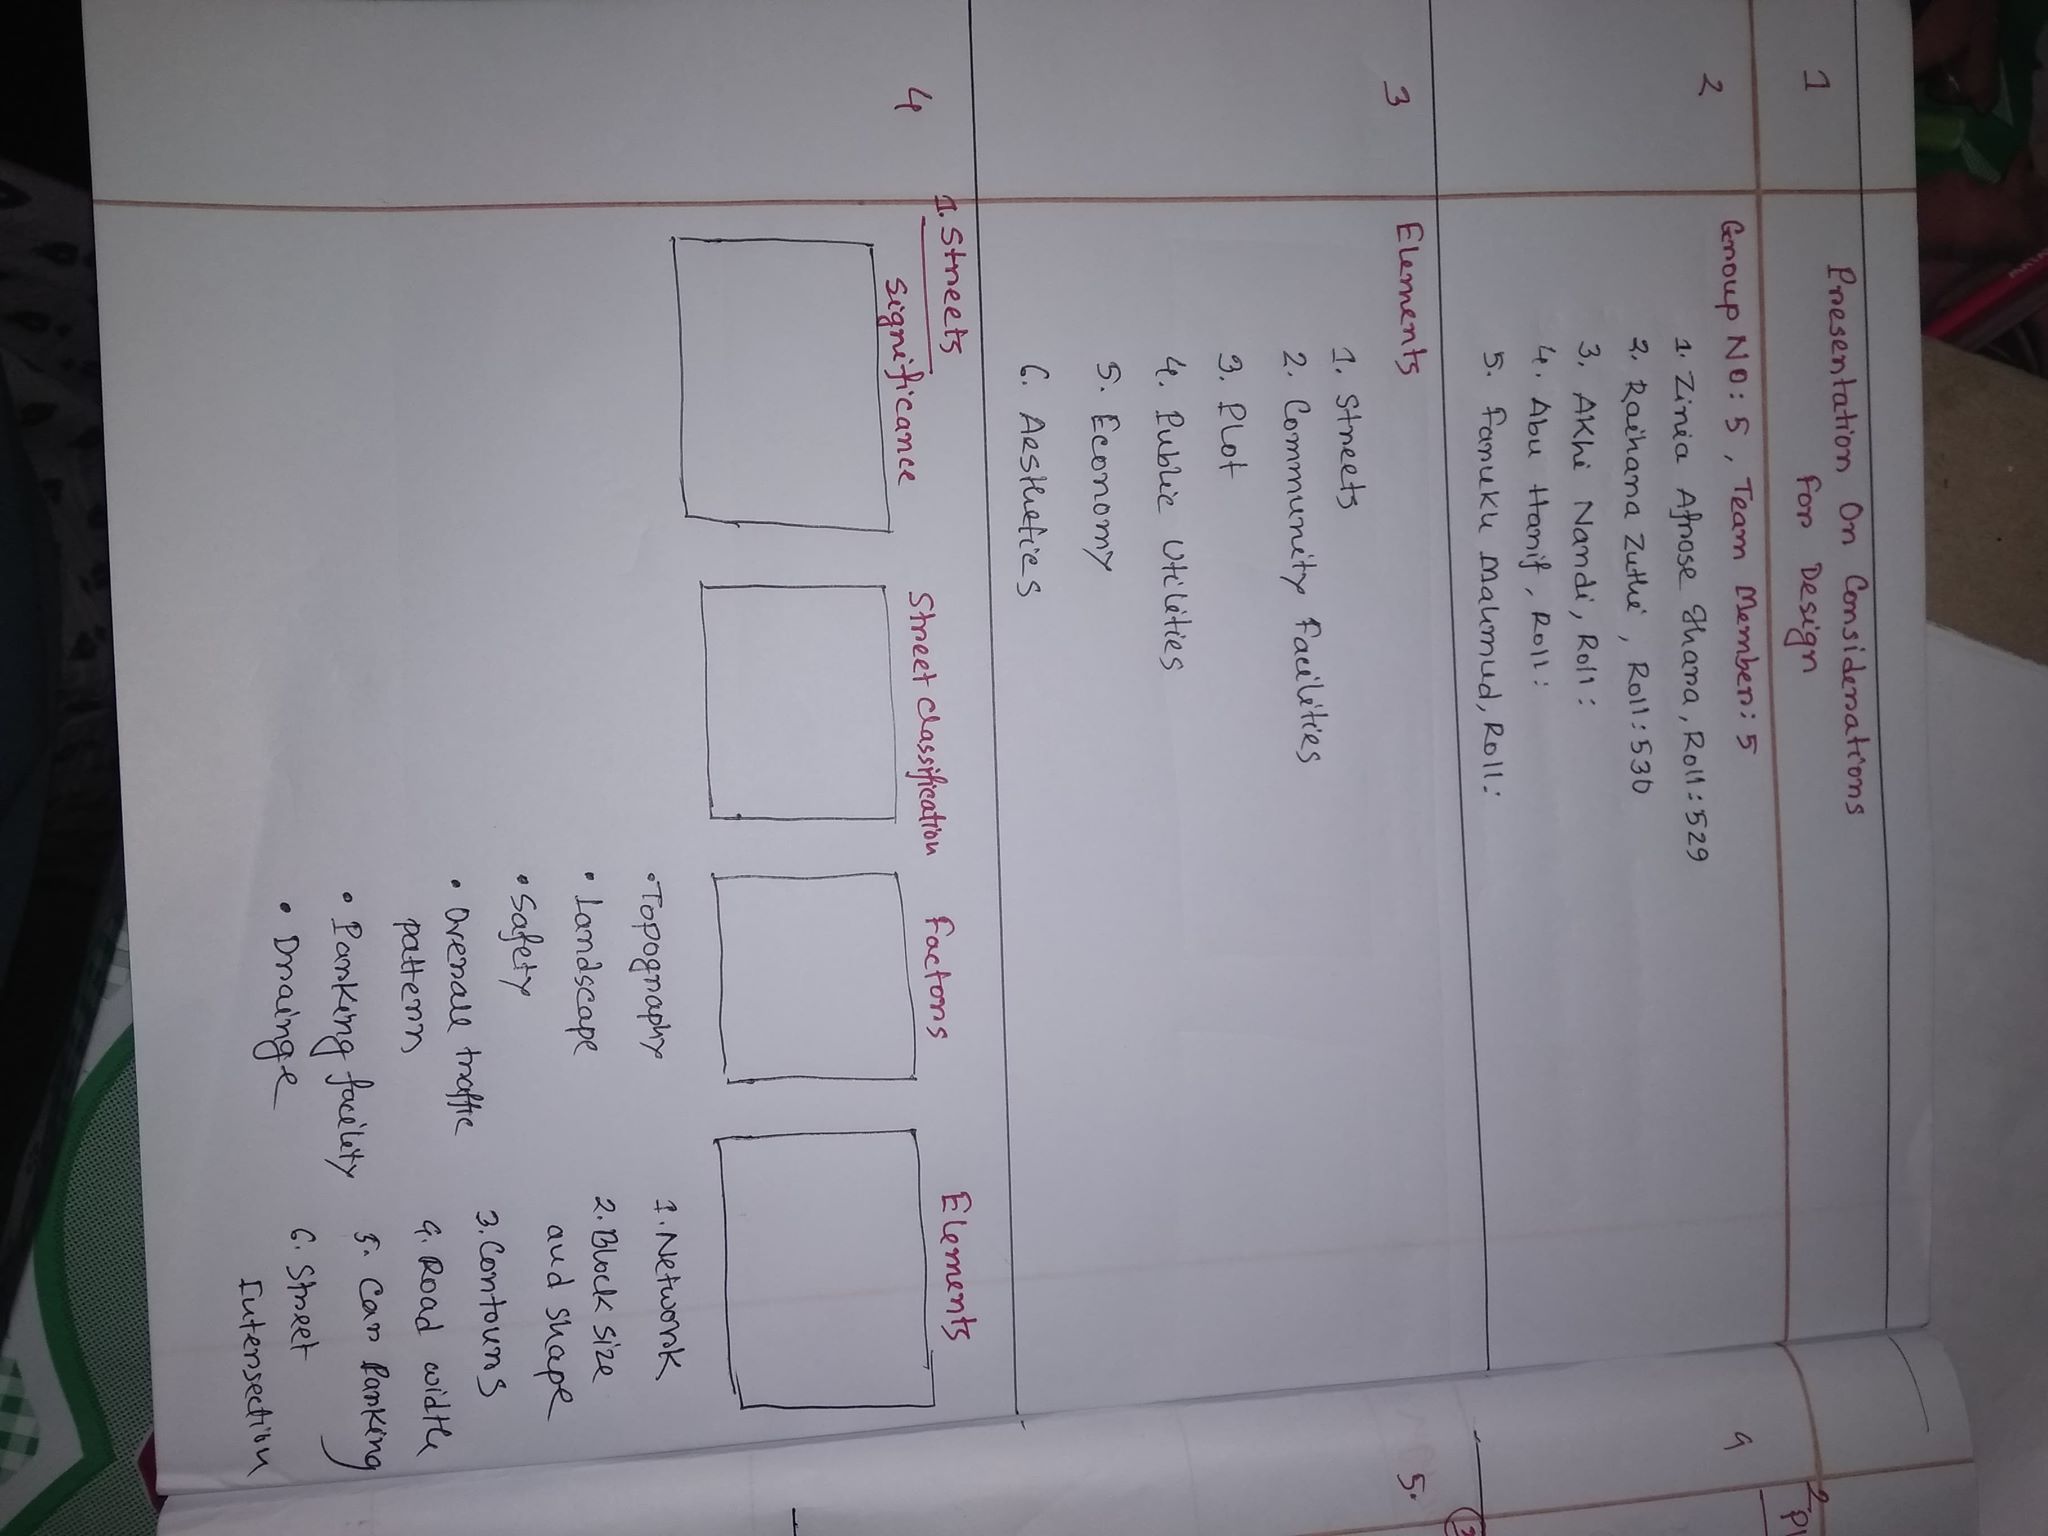 1
Presentation On Considerations
For Design
2
Group NO: 5, Team Member: 5
1. Zinia Afrose Jhara, Roll: 529
2. Raihana Zuthi, Roll: 530
3. Akhi Nandi, Roll:
4. Abu Hanif, Roll:
5. Faruku Mahmud, Roll:
3
Elements
1. Streets
2. Community Facilities
3. Plot
4. Public Utilities
5. Economy
6. Aesthetics
4
1. Streets
Significance
Street Classification
Factors
Elements
• Topography
• Landscape
• Safety
• Overall traffic
pattern
• Parking facility
• Drainge
1. Network
2. Block size
and shape
3. Contours
4. Road width
5. Car Parking
6. Street
Intersection
2
4
5.